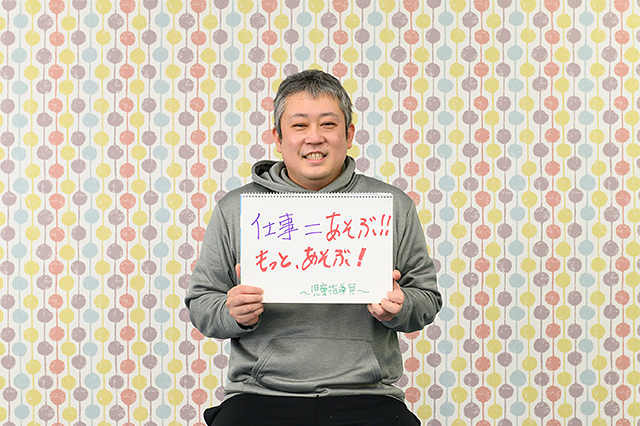 仕事=あそぶ!!
もっと、あそぶ!
~児童指導員~